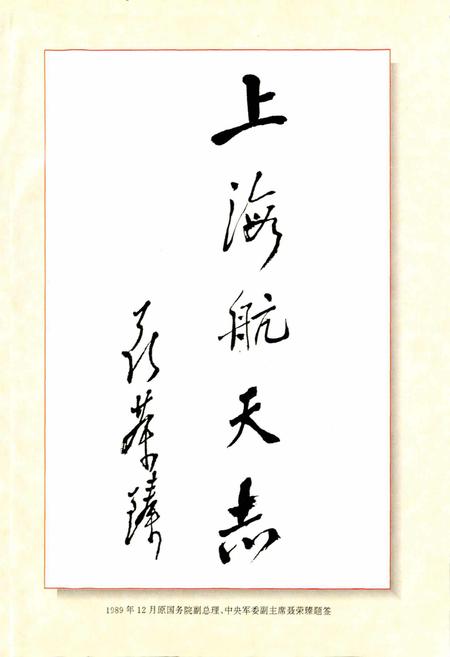 上海航天志
聂荣臻
1989年12月原国务院副总理、中央军委副主席聂荣臻题签